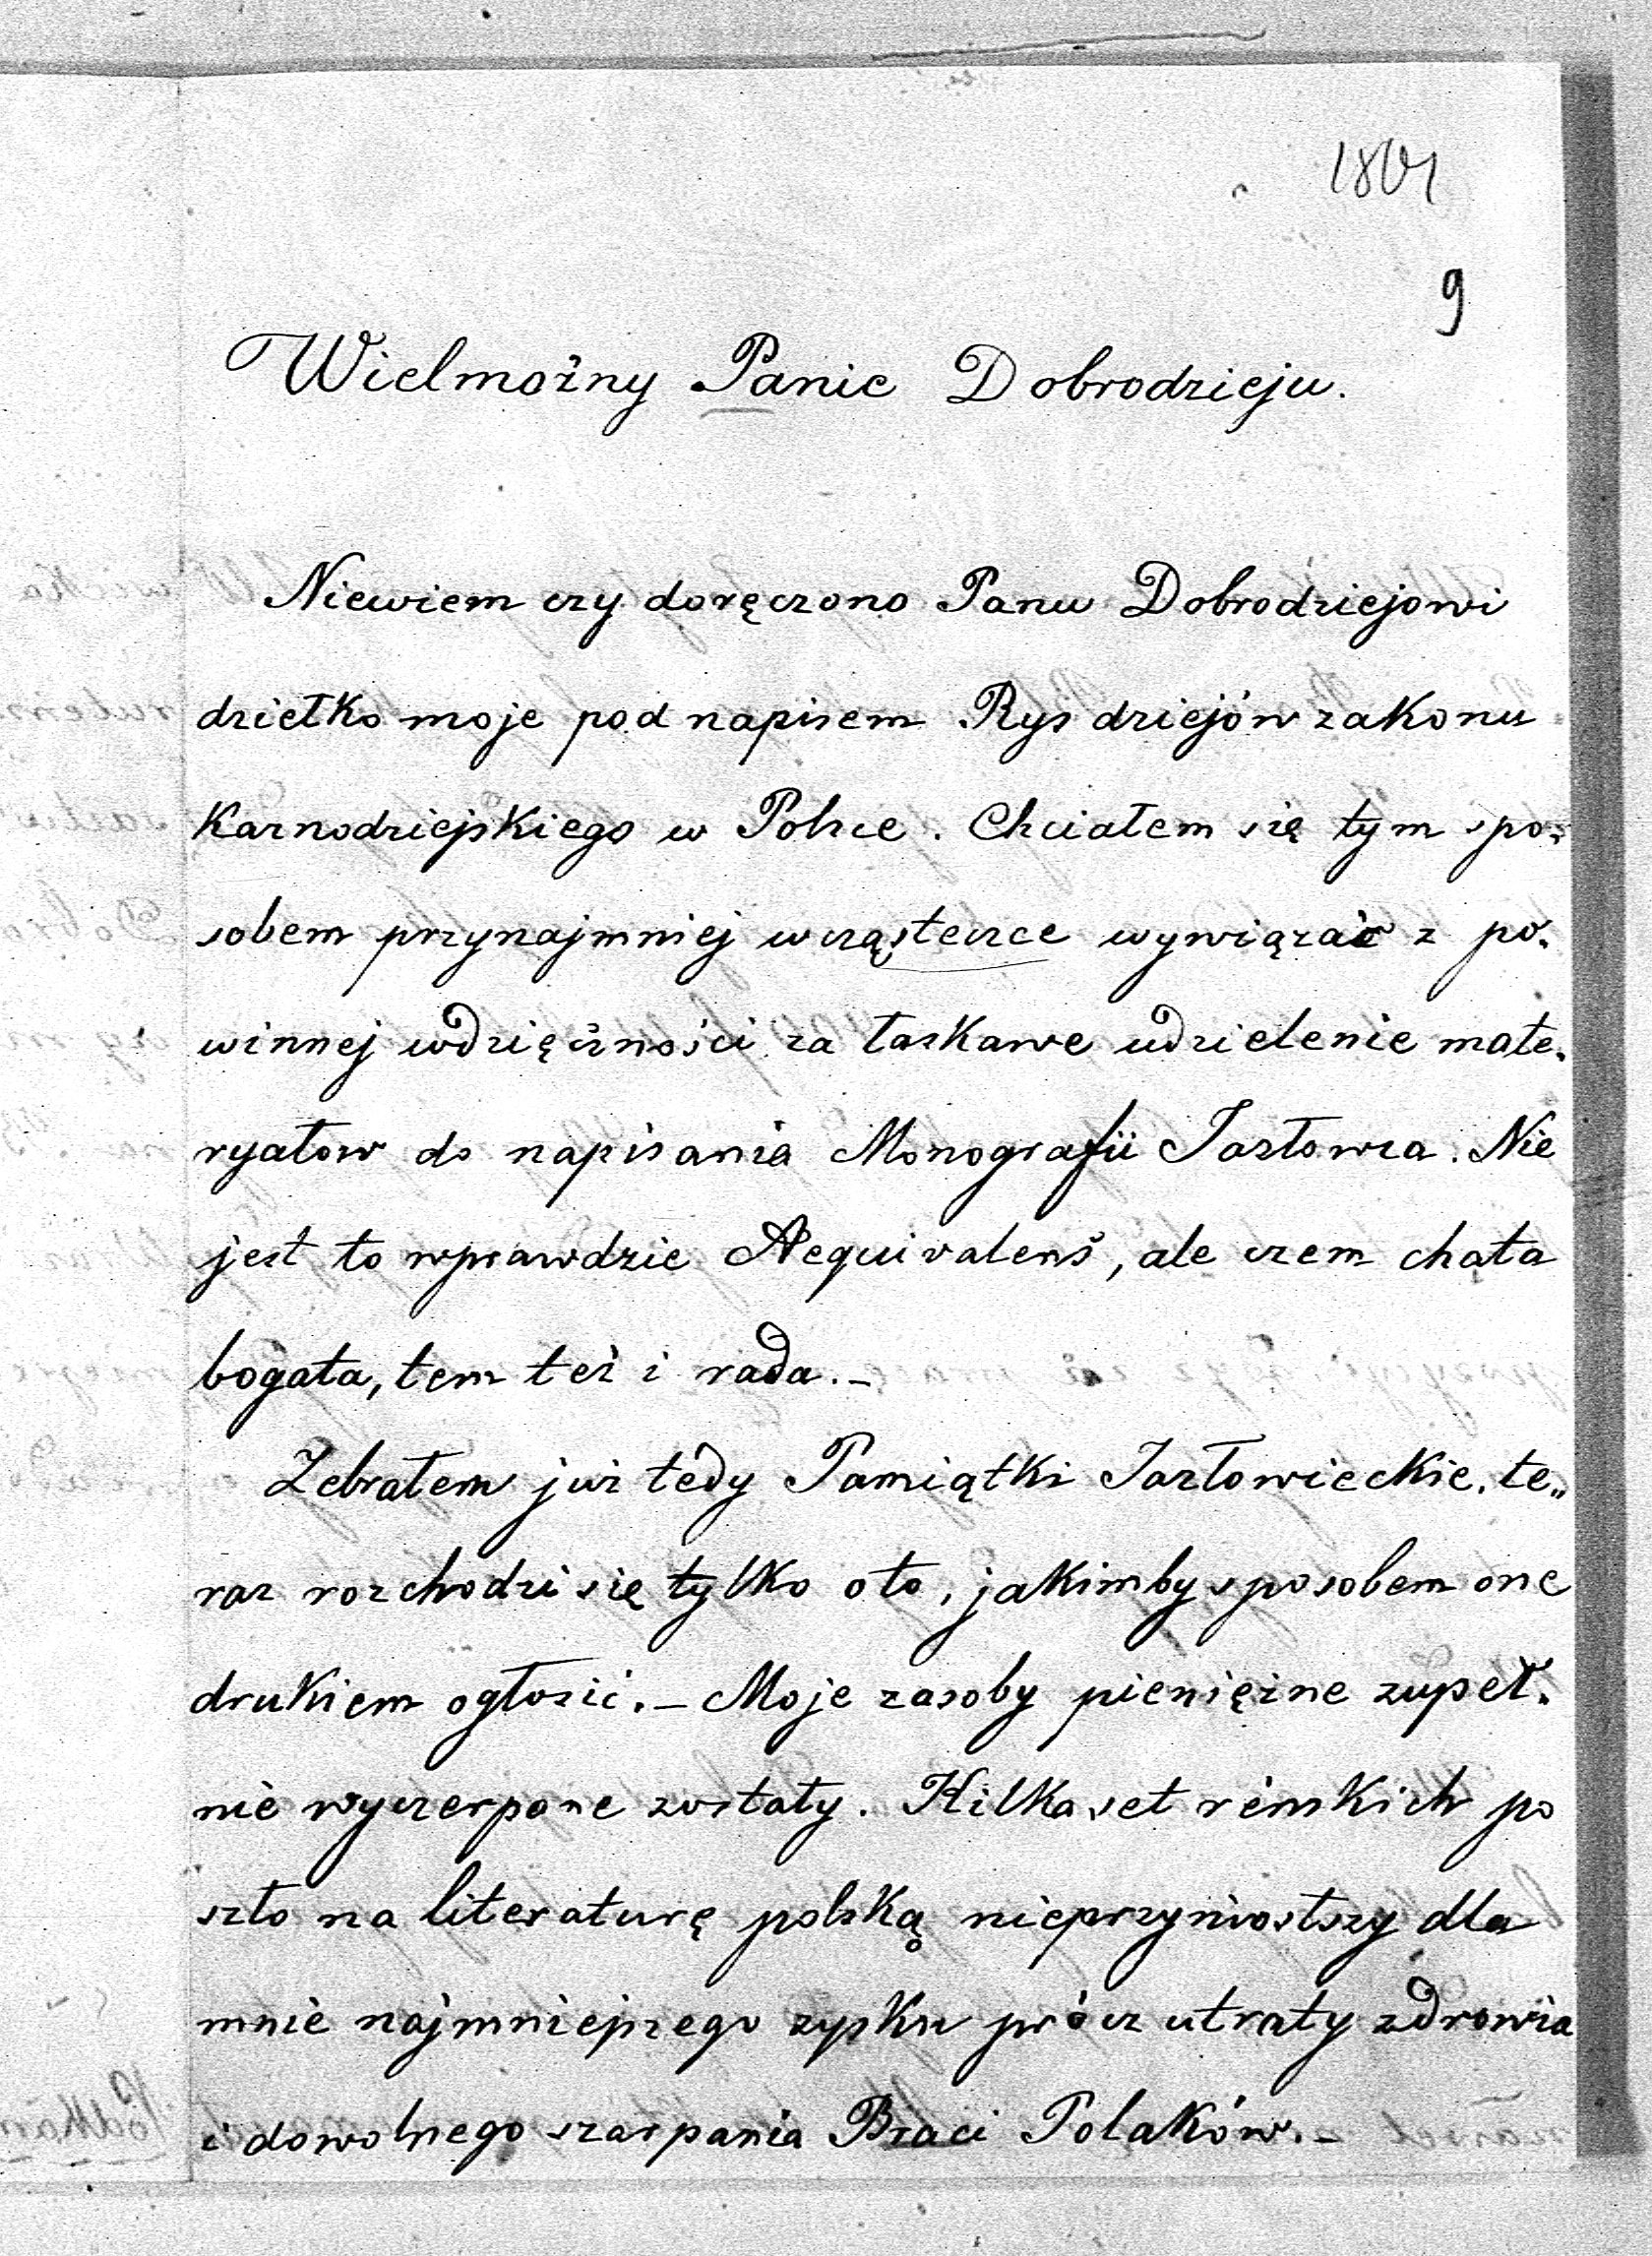 1861
9
Wielmożny Panie Dobrodzieju.
Niewiem czy doręczono Panu Dobrodziejowi
dziełko moje pod napisem Rys dziejów zakonu
Kaznodziejskiego w Polsce. Chciałem się tym spo-
sobem przynajmniej w cząsteczce wywiązać z po-
winnej wdzięczności za łaskawe udzielenie mate-
ryałow do napisania Monografii Jazłowca. Nie
jest to wprawdzie Aequivalens, ale czem chata
bogata, tem też i rada.-
Zebrałem już tedy Pamiątki Jazłowieckie. te-
raz rozchodzi się tylko oto, jakimby sposobem one
drukiem ogłosić.- Moje zasoby pieniężne zupeł-
nie wyczerpane zostały. Kilka set rémskich po
szło na literaturę polską nieprzyniosłszy dla
mnie najmniejszego zysku prócz utraty zdrowia
i dowolnego szarpania Braci Polaków.-